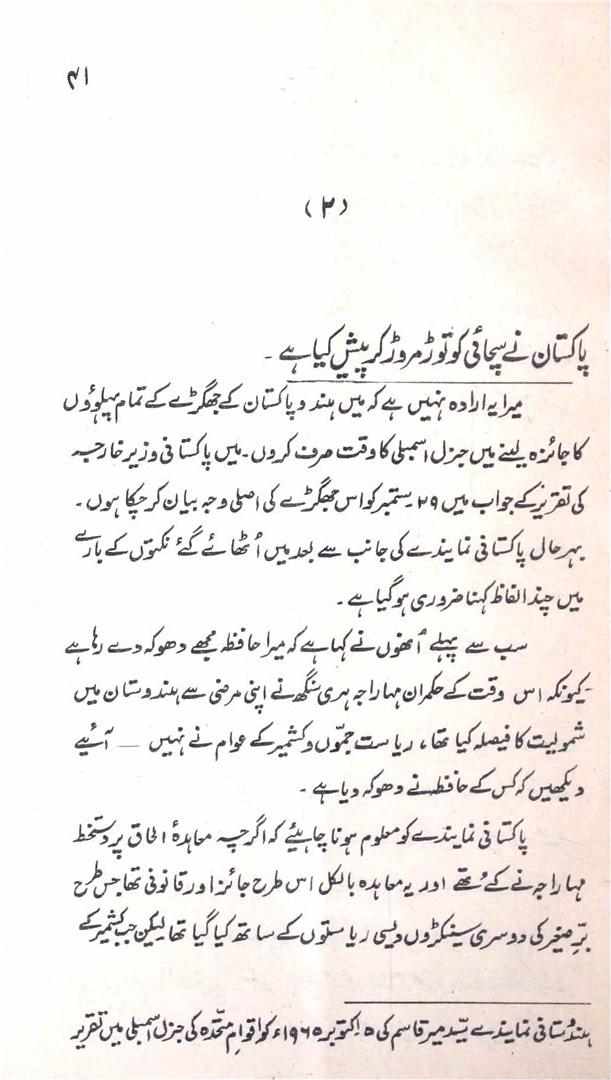 ۴۱
(۲)
پاکستان نے سچائی کو توڑ مروڑ کر پیش کیا ہے ۔
میرا یہ ارادہ نہیں ہے کہ میں ہند و پاکستان کے جھگڑے کے تمام پہلوؤں
کا جائزہ لینے میں جنرل اسمبلی کا وقت صرف کروں۔ میں پاکستانی وزیر خارجہ
کی تقریر کے جواب میں ۲۹ ستمبر کو اس جھگڑے کی اصلی وجہ بیان کر چکا ہوں ۔
بہر حال پاکستانی نمایندے کی جانب سے بعد میں اُٹھائے گئے نکتوں کے بارے
میں چند الفاظ کہنا ضروری ہو گیا ہے ۔
سب سے پہلے اُنھوں نے کہا ہے کہ میرا حافظہ مجھے دھوکہ دے رہا ہے
کیونکہ اس وقت کے حکمران مہاراجہ ہری سنگھ نے اپنی مرضی سے ہندوستان میں
شمولیت کا فیصلہ کیا تھا، ریاست جموّں و کشمیر کے عوام نے نہیں — آئیے
دیکھیں کہ کس کے حافظہ نے دھوکہ دیا ہے ۔
پاکستانی نمایندے کو معلوم ہونا چاہیئے کہ اگرچہ معاہدۂ الحاق پر دستخط
مہاراجہ نے کئے تھے اور یہ معاہدہ بالکل اس طرح جائز اور قانونی تھا جس طرح
برِّ صغیر کی دوسری سینکڑوں دیسی ریاستوں کے ساتھ کیا گیا تھا لیکن جب کشمیر کے
ہندُوستانی نمایندے سیّد میر قاسم کی ۵ اکتوبر ۱۹۶۵ء کو اقوامِ متّحدہ کی جنرل اسمبلی میں تقریر